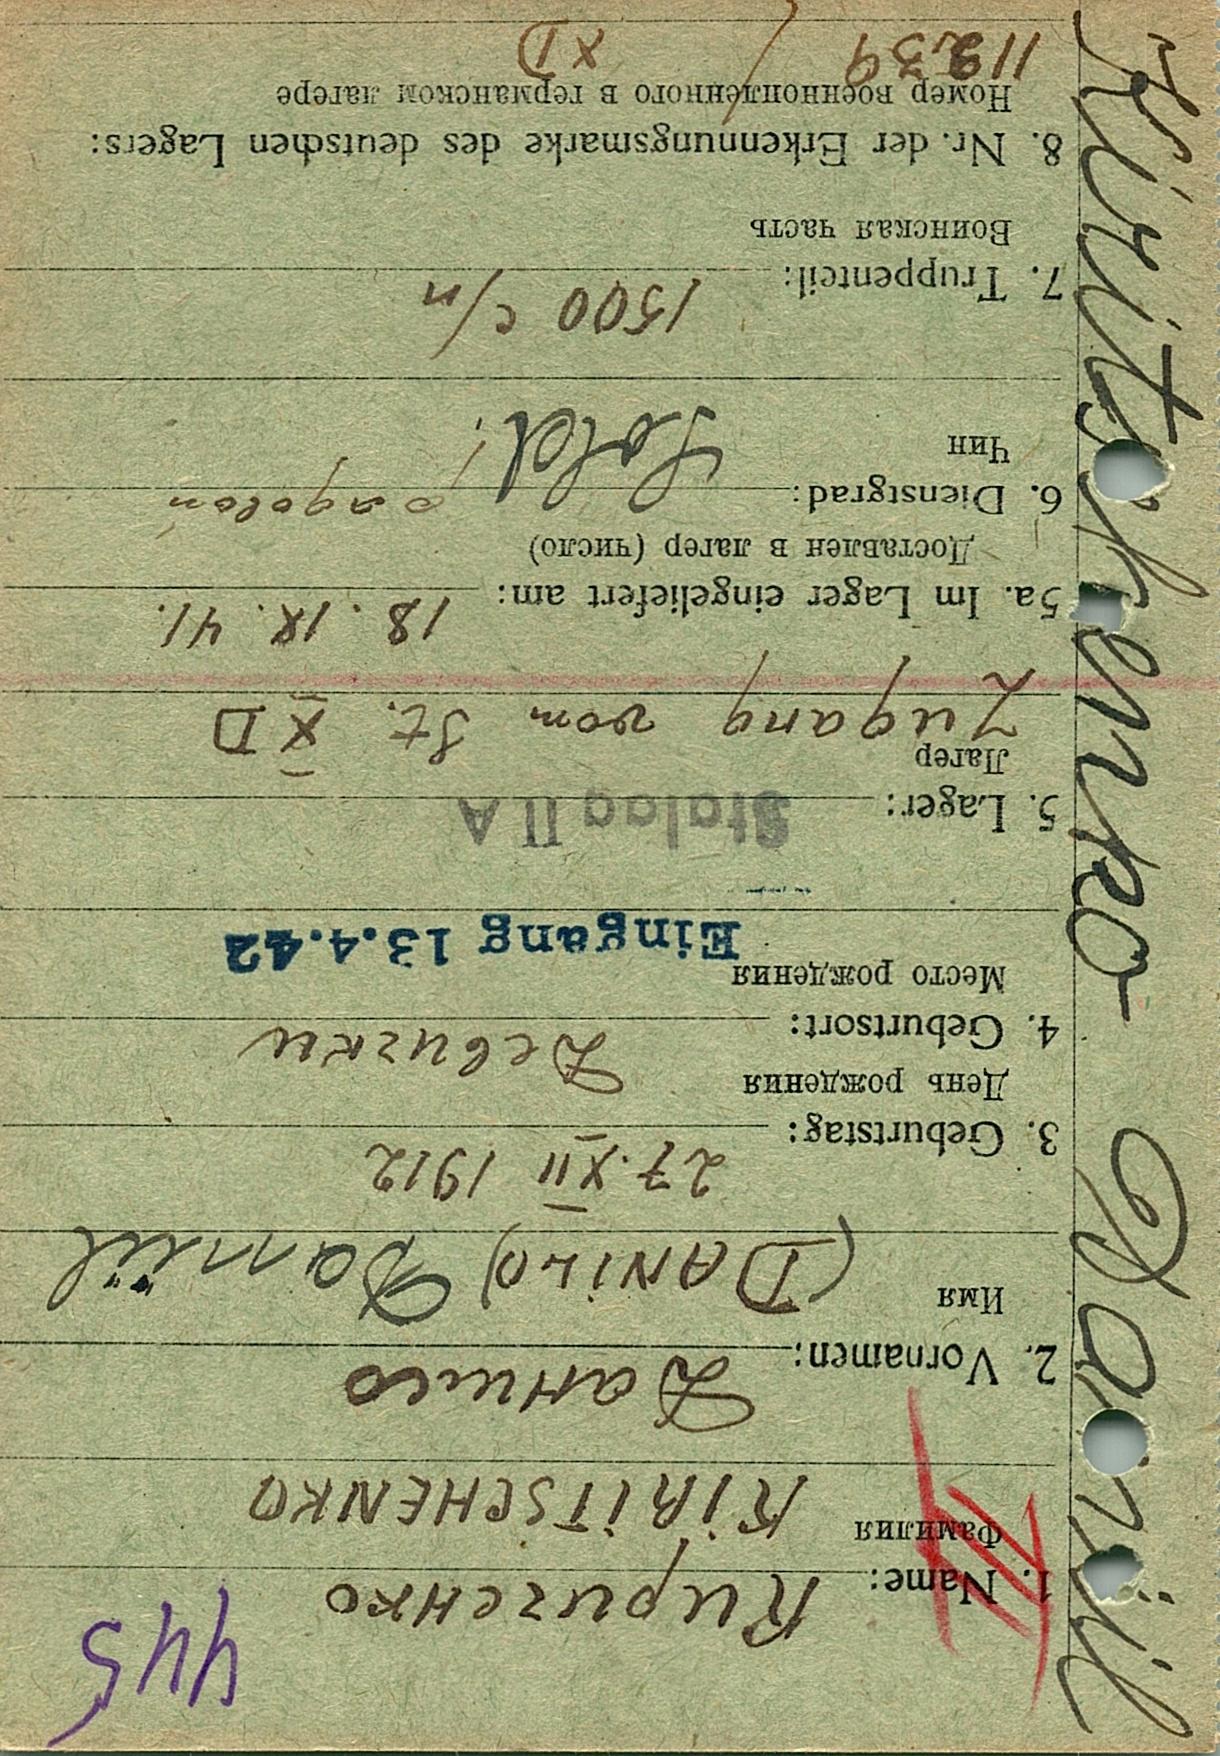 445
1. Name: Киризенко
Фамилия KIRITSCHENKO
2. Vornamen: Данило
Имя (DANILO) Daniil
3. Geburtstag: 27.XII 1912
День рождения
4. Geburtsort: Девизки
Место рождения
Eingang 13.4.42
5. Lager: Stalag II A
Лагер
Zugang vom St. X D
5a. Im Lager eingeliefert am: 18. IX. 41.
Доставлен в лагер (число)
6. Dienstgrad: Sold.
Чин
7. Truppenteil: 1500 с/п
Воинская часть
8. Nr. der Erkennungsmarke des deutschen Lagers:
Номер военнопленного в германском лагере
/ XD
Kiritschenko Daniil